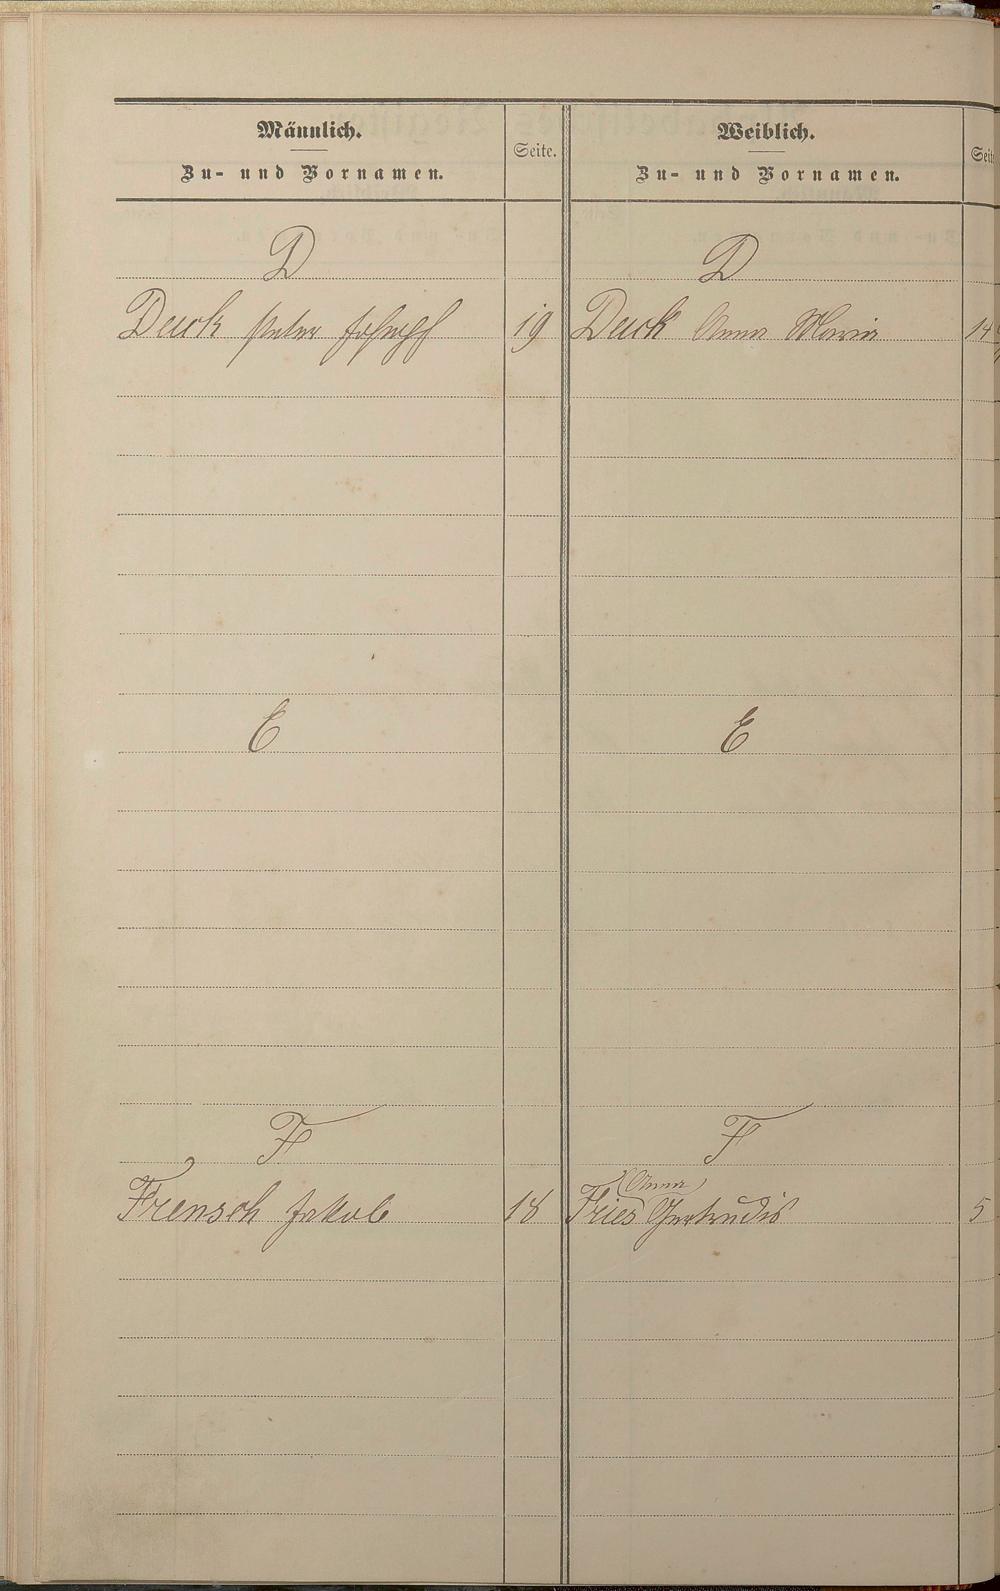 Männlich.
Zu- und Vornamen.
Seite.
Weiblich.
Zu- und Vornamen.
Seite
D
D
Duck Peter Joseph 19
Duck Anna Maria 14
E
E
F
F
Frensch Jakob 18
Anna
Fries Gertrudis 5